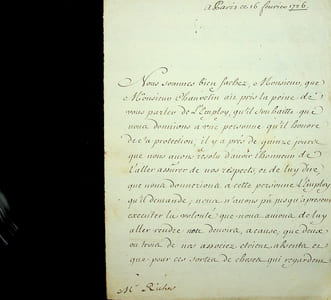 a Paris ce 16 fevrier 1726.
Nous sommes bien fachez, Monsieur, que
Monsieur Chauvelin ait pris la peine de
vous parler de l'Employ, qu'il souhaitte que
nous donnions a une personne qu'il honore
de sa protection, il y a près de quinze jours
que nous avons resolu d'avoir l'honneur de
l'aller assurer de nos respects, et de luy dire
que nous donnerions a cette personne l'Employ
qu'il demande; nous n'avons pu jusqu'apresent
executer la volonté que nous avions de luy
aller rendre nos devoirs, a cause, que deux
ou trois de nos associez etoient absents et
que pour ces sortes de choses qui regardent
Mr.